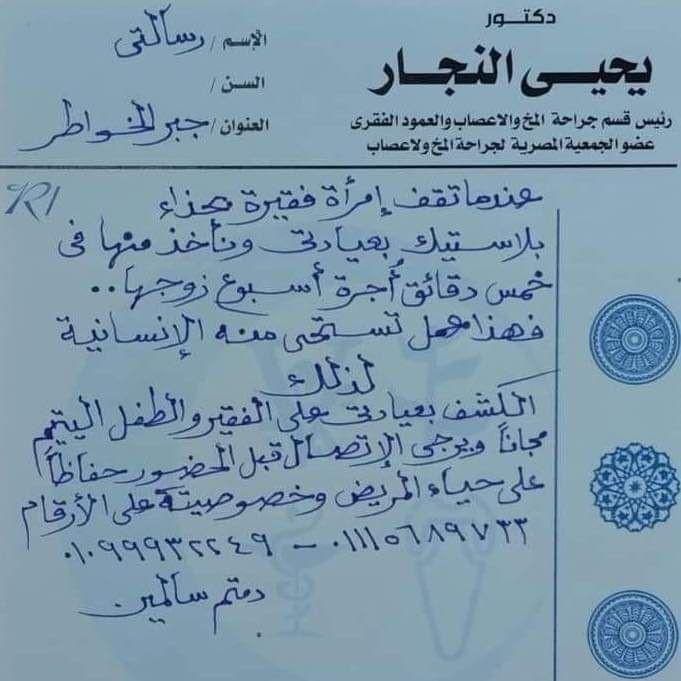 دكتـــور
يحيـــى النجـــار
رئيس قسم جراحة المخ والاعصاب والعمود الفقرى
عضو الجمعية المصرية لجراحة المخ ولاعصاب
الإسم / رسالتى
السن /
العنوان / جبر الخواطر
R/
عندما تقف إمرأة فقيرة بحذاء
بلاستيك بعيادتى ونأخذ منها فى
خمس دقائق أجرة أسبوع زوجها..
فهذا عمل تستحى منه الإنسانية
لذلك
الكشف بعيادتى على الفقير والطفل اليتيم
مجاناً ويرجى الإتصال قبل الحضور حفاظاً
على حياء المريض وخصوصيتة على الأرقام
٠١١١٥٦٨٩٧٣٣ - ٠١٠٩٩٩٣٢٢٤٩
دمتم سالمين